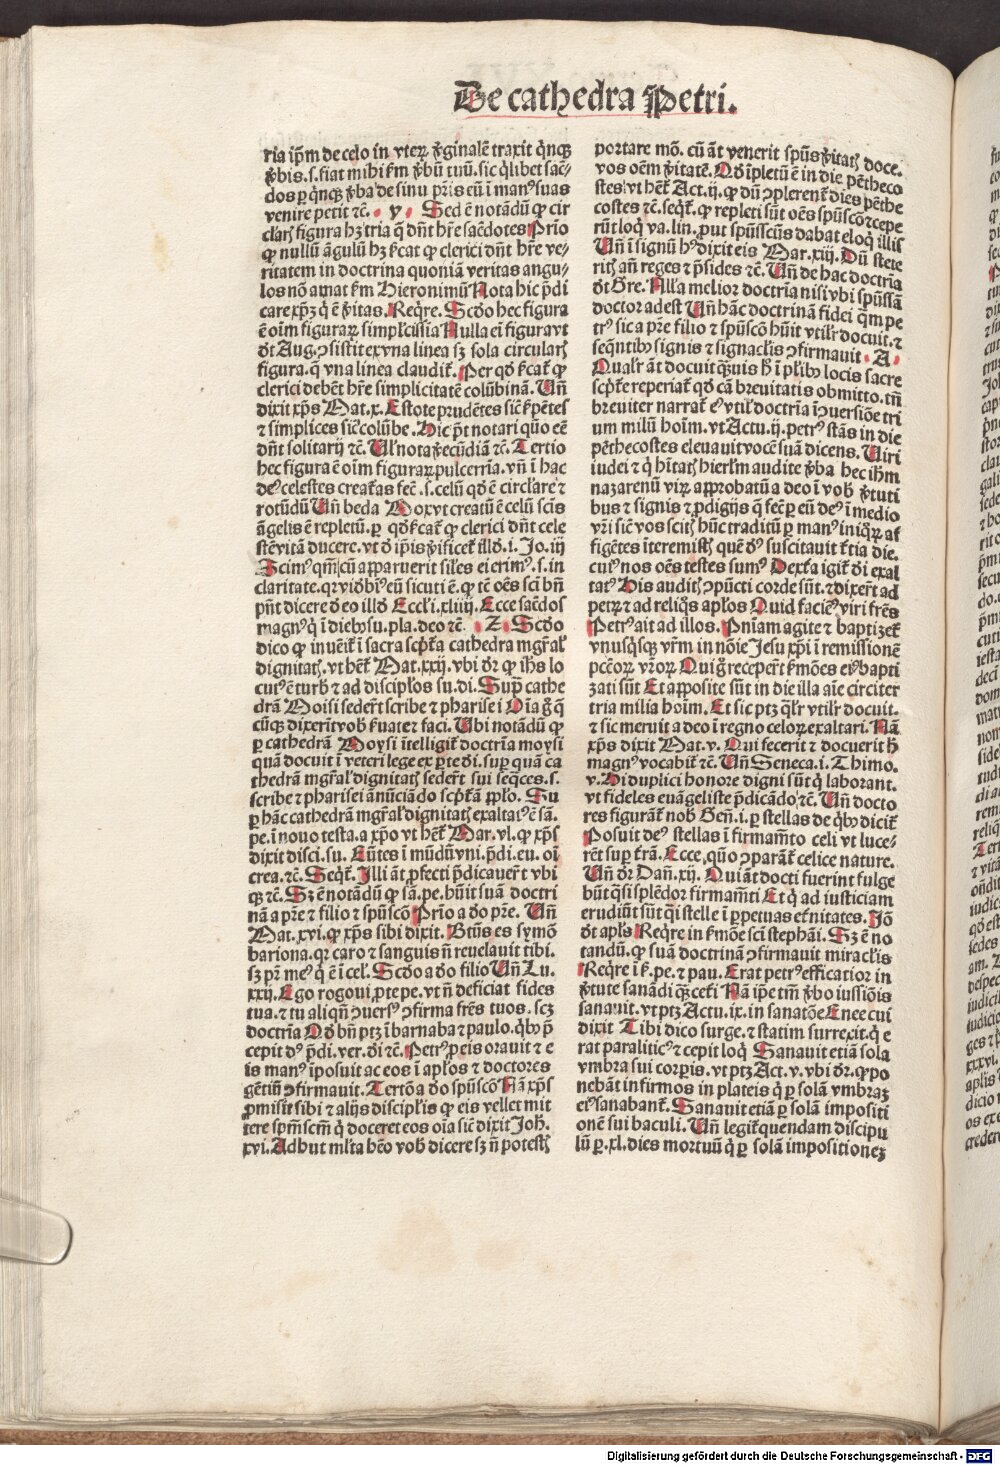 De cathedra Petri.
ria ip̄m de celo in vterū v̓ginalē traxit q̄nqꝫ
v̓bis .s. fiat mihi ẜm v̓bū tuū. sic q̄libet sac̄
dos ꝑ q̄nqꝫ v̓ba de sinu pr̄is eū ī manꝰ suas
venire petit ⁊c̄. y. Sed ē notādū ꝙ cir
clar̄ figura hꝫ tria q̄ dn̄t hr̄e sac̄dotes Prīo
ꝙ nullū āgulū hꝫ ẜcat ꝙ clerici dn̄t hr̄e ve⸗
ritatem in doctrina quoniā veritas angu⸗
los nō amat ẜm Hieronimū Nota hic p̄di
care xp̄ꝫ q̄ ē v̓itas. Req̄re. Scd̄o hec figura
ē oīm figurarꝝ simplcissīa Nulla eī figura vt
dt̄ Aug. ꝯsistit ex vna linea sꝫ sola circular̄
figura. q̄ vna linea claudit̄. Per qd̓ ẜcat̄ ꝙ
clerici debēt hr̄e simplicitatē colūbinā. Vn̄
dixit xp̄s Mat. x. Estote prudētes sic̄ ẜpētes
⁊ simplices sic̄ colūbe. Hic p̄t notari quō eē
dn̄t solitarij ⁊c̄. Vl̓ nota fecūdiā ⁊c̄. Tertio
hec figura ē oīm figurarꝝ pulcerrīa. vn̄ ī hac
deꝰ celestes creat̄as fec̄ .s. celū qd̓ ē circl̓are ⁊
rotūdū Vn̄ beda Mox vt creatū ē celū scīs
āgelis ē repletū. ꝑ qd̓ ẜcat̄ ꝙ clerici dn̄t cele
stē vitā ducere. vt d̓ ip̄is v̓ificet̄ illd̓ .i. Jo. iij
Scimꝰ qm̄ cū apparuerit siles ei erimꝰ .s. in
claritate. qr videbimꝰ eū sicuti ē. ꝙ tē oēs scī bn̄
pn̄t dicere d̓ eo illd̓ Eccl̓i. xliiij. Ecce sac̄dos
magnꝰ q̄ ī dieb̄ su. pla. deo ⁊c̄. Z. Scd̄o
dico ꝙ inuēit̄ ī sacra scp̄t̄a cathedra mgr̄al̓
dignitat̄. vt hēt̄ Mat. xxij. vbi dr̄ ꝙ ih̄s lo
cutꝰ ē turb̄ ⁊ ad discipl̓os su. di. Sup̄ cathe
drā Moisi seder̄t scribe ⁊ pharisei Oīa g̓ q̄
cūqꝫ dixerīt vob̄ ẜuate ⁊ faci. Ubi notādū ꝙ
ꝑ cathedrā Moysi ītelligit̄ doctrīa moysi
quā docuit ī veteri lege ex ꝑte dī. suꝑ quā ca
thedrā mgr̄al̓ dignitat̄ seder̄t sui seq̄ces .s.
scribe ⁊ pharisei ānūciādo scp̄t̄ā ppl̓o. Su
ꝑ hāc cathedrā mgr̄al̓ dignitat̄ exaltatꝰ ē san̄.
pe. ī nouo testa. a xp̄o vt hēt̄ Mar. vl. ꝙ xp̄s
dixit disci. su. Eūtes ī mūdū vni. p̄di. eu. oī
crea. ⁊c̄. Seqt̄. Illi āt ꝓfecti p̄dicauer̄t vbi
qꝫ ⁊c̄. Sꝫ ē notādū ꝙ sā. pe. hūit suā doctri
nā a pr̄e ⁊ filio ⁊ spūscō Prīo a do pr̄e. Vn̄
Mat. xvi. ꝙ xp̄s sibi dixit. Btūs es symō
bariona. qr caro ⁊ sanguis n̄ reuelauit tibi.
sꝫ pr̄ meꝰ q̄ ē ī cel̓. Scd̄o a do filio Vn̄ Lu.
xxij. Ego rogaui ꝓ te pe. vt n̄ deficiat fides
tua. ⁊ tu aliqn̄ ꝯuersꝰ ꝯfirma fr̄es tuos. scꝫ
doctrīa Qd̓ bn̄ ptꝫ ī barnaba ⁊ paulo. qb̄ p̄
cepit dꝰ p̄di. ver. dī ⁊c̄. Petrꝰ ꝓ eis orauit ⁊ e
is manꝰ īposuit ac eos ī apl̓os ⁊ doctores
gētiū ꝯfirmauit. Tertō a do spūscō Nā xp̄s
ꝓmisit sibi ⁊ alijs discipl̓is ꝙ eis vellet mit
tere spm̄scm̄ q̄ doceret eos oīa sic̄ dixit Joh.
xvi. Adhuc ml̓ta hēo vob̄ dicere sꝫ n̄ potest̄
portare mō. cū āt venerit spūs v̓itat̄ doce.
vos oēm v̓itatē. Qd̓ īpletū ē in die pētheco
stes vt hēt̄ Act. ij. ꝙ dū ꝯplerent̄ dies pēthe
costes ⁊c̄. seqt̄. ꝙ repleti sūt oēs spūscō ⁊ cepe
rūt loq̄ va. lin. prout spūsscūs dabat eloq̄ illis
Vn̄ ī signū hꝰ dixit eis Mar. xiij. Dū stete
rit̄ an̄ reges ⁊ p̄sides ⁊c̄. Vn̄ de hac doctrīa
dt̄ Gre. Nll̓a melior doctrīa nisi vbi spūssā
doctor adest Vn̄ hāc doctrinā fidei q̄m pe
trꝰ sic a pr̄e filio ⁊ spūscō hūit vtilr̄ docuit. ⁊
seq̄ntib̄ signis ⁊ signacl̓is ꝯfirmauit. A.
Qualr̄ āt docuit q̄uis h̄ ī pl̓ib̄ locis sacre
scp̄t̄e reperiat̄ qd̓ cā breuitatis obmitto. tn̄
breuiter narrat̄ eiꝰ vtil̓ doctrīa ī ꝯuersiōe tri
um miliū hoīm. vt Actu. ij. petrꝰ stās in die
pēthecostes eleuauit vocē suā dicens. Viri
iudei ⁊ q̄ hītat̄ hierl̓m audite v̓ba hec ihm̄
nazarenū virꝝ approbatū a deo ī vob̄ v̓tuti
bus ⁊ signis ⁊ ꝓdigijs q̄ fec̄ ꝑ eū deꝰ ī medio
vr̄i sic̄ vos scit̄ hūc traditū ꝑ manꝰ iniq̄ꝝ af
figētes īteremist̄ quē dꝰ suscitauit t̄tia die.
cuiꝰ nos oēs testes sumꝰ Dext̄a igit̄ dī exal
tatꝰ His audit̄ ꝯpūcti corde sūt. ⁊ dixer̄t ad
petꝝ ⁊ ad reliq̄s apl̓os Quid faciēꝰ viri fr̄es
Petrꝰ ait ad illos. Pn̄iam agite ⁊ baptizet̄
vnusq̄sqꝫ vr̄m in nōie Jesu xp̄i ī remissionē
pccōꝝ vr̄oꝝ Qui g̓ receper̄t ẜmōes eiꝰ bapti
zati sūt Et apposite sūt in die illa aīe circiter
tria milia hoīm. Et sic ptꝫ qlr̄ vtilr̄ docuit.
⁊ sic meruit a deo ī regno celoꝝ exaltari. Nā
xp̄s dixit Mat. v. Qui fecerit ⁊ docuerit h̄
magnꝰ vocabit̄ ⁊c̄. Vn̄ Seneca. i. Thimo.
v. Hi duplici honore digni sūt q̄ laborant.
vt fideles euāgeliste p̄dicādo ⁊c̄. Vn̄ docto
res figurāt̄ nob̄ Gen̄. i. ꝑ stellas de qb̄ dicit̄
Posuit deꝰ stellas ī firmam̄to celi vt luce⸗
rēt suꝑ t̄rā. Ecce, quō ꝯparāt̄ celice nature.
Vn̄ dr̄ Dan̄. xij. Qui āt docti fuerint fulge
būt q̄si splēdor firmam̄ti Et q̄ ad iusticiam
erudiūt sūt q̄si stelle ī ꝑpetuas et̄nitates. Jō
dt̄ apl̓s Req̄re in ẜmōe scī stephāi. Sꝫ ē no
tandū. ꝙ suā doctrinā ꝯfirmauit miracl̓is
Req̄re ī ẜ. pe. ⁊ pau. Erat petrꝰ efficatior in
v̓tute sanādi q̄ꝫ cet̄i Nā ip̄e tm̄ v̓bo iussiōis
sanauit. vt ptꝫ Actu. ix. in sanatōe Enee cui
dixit Tibi dico surge. ⁊ statim surrexit. q̄ e
rat paraliticꝰ ⁊ cepit loq̄ Sanauit etiā sola
vmbra sui corpis. vt ptꝫ Act. v. vbi dr̄. ꝙ po
nebāt infirmos in plateis q̄ ꝑ solā vmbraꝫ
eiꝰ sanabant̄. Sanauit etiā ꝑ solā impositi
onē sui baculi. Vn̄ legit̄ quendam discipu
lū ꝑ .xl. dies mortuū q̄ ꝑ solā impositioneꝫ
Digitalisierung gefördert durch die Deutsche Forschungsgemeinschaft - DFG